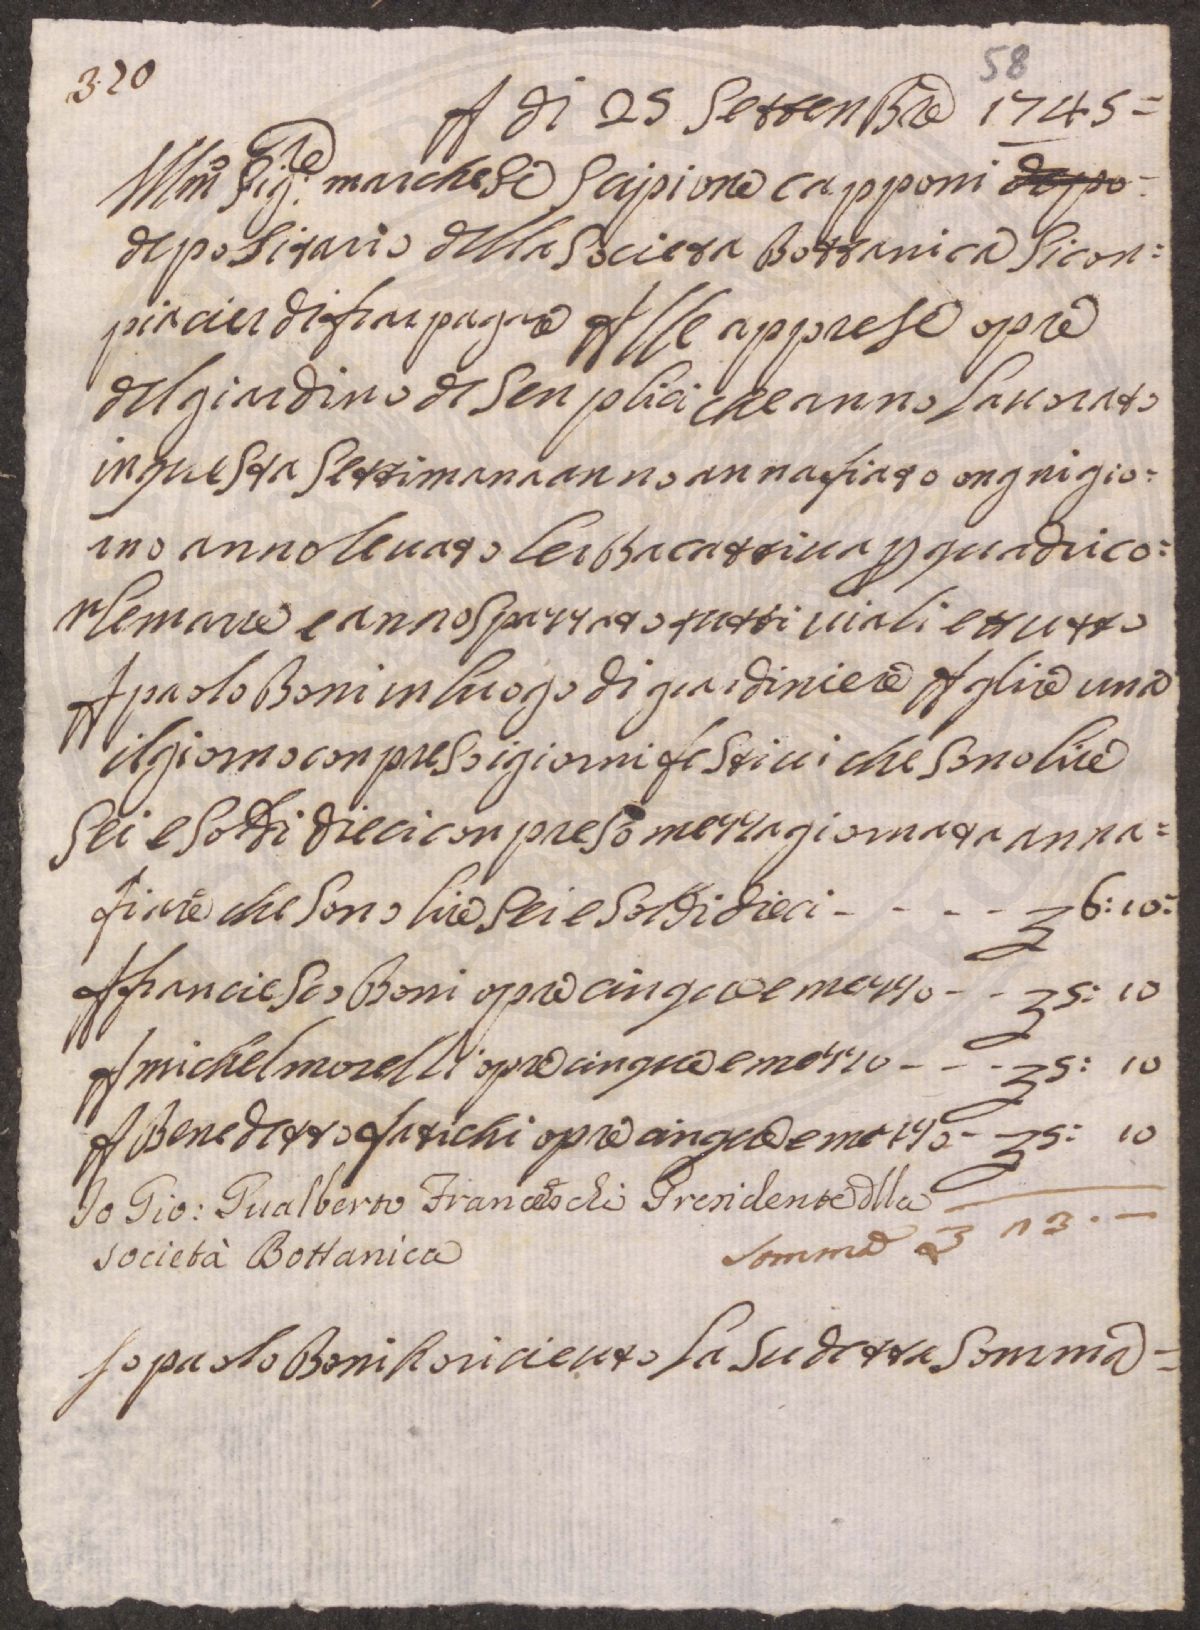 320
58
A di 25 SettenBre 1745=
Illmo Sig:re marchese Scipione capponi depo=
depositario della Societa Bottanica Si con=
piacier di far pagare A lle apprese opre
del giardino de Senplici che anno lauorato
in questa Settimana anno annafiato ongni gio=
rno anno leuato lerBa cattiua p quadri co=
nle marre e anno spazzato tutti i uiali e ttutto
A paolo Boni in luogo di giardiniere A glire una
il giorno con preso i giorni festiui che sono lire
Sei e Soldi dieci con preso mezza giornata anna=
fiare che Sono lire Sei e Soldi dieci - - - - 6:10:
A franciesco Boni opre cinque e mezzo - - 5: 10
A michel morelli opre cinque e mezzo - - - 5: 10
A Benedetto fatichi opre cinque e mezzo - - 5: 10
Io Gio: Gualberto Franceschi Presidente dlla
società Bottanica
Somma 23. —
Jo paolo Boni ho ricieuto la Sudetta Somma =